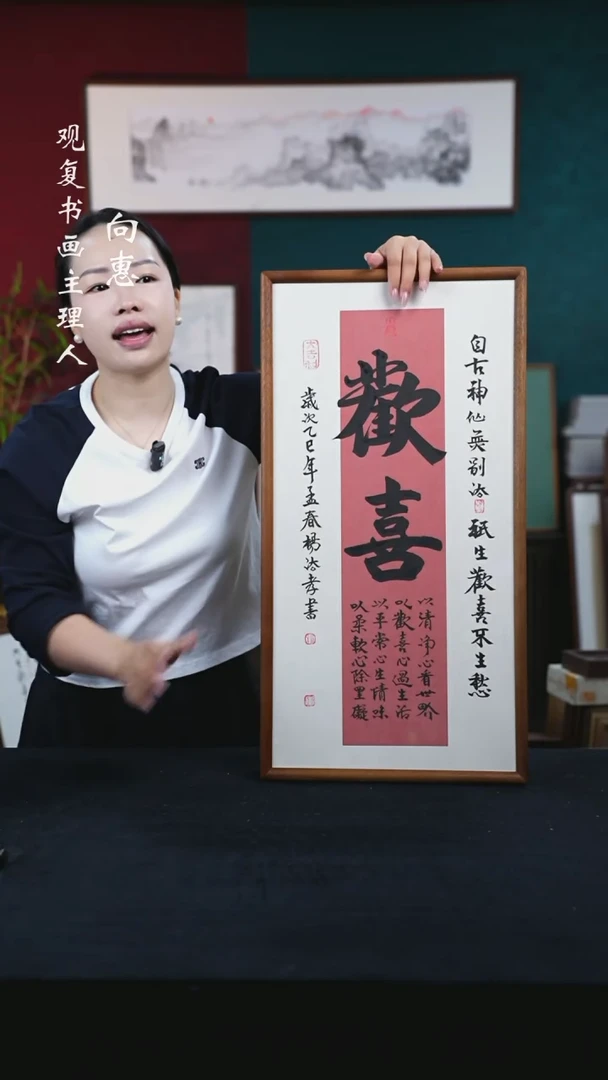 观复书画主理人
向惠
自古神仙無别法
秖生歡喜不生愁
歡喜
以清净心看世界
以歡喜心過生活
以平常心生情味
以柔軟心除罣礙
歲次乙巳年孟春楊法孝書